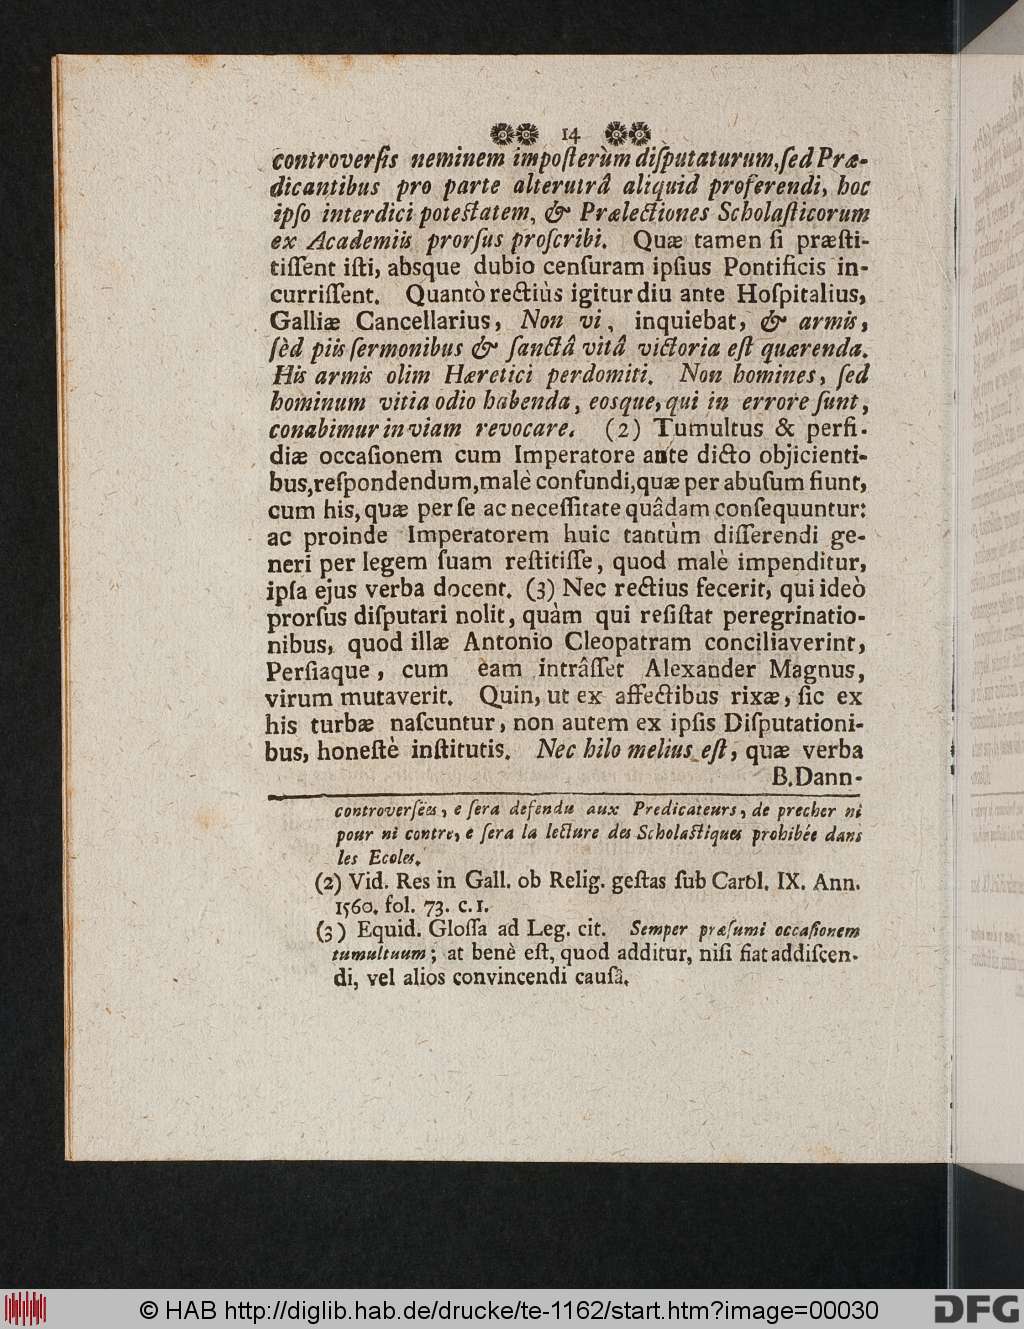 14
controverſis neminem impoſterùm diſputaturum, ſed Præ-
dicantibus pro parte alterutrâ aliquid proferendi, hoc
ipſo interdici poteſtatem, & Prælectiones Scholaſticorum
ex Academiis prorſus proſcribi. Quæ tamen ſi præſti-
tiſſent iſti, absque dubio cenſuram ipſius Pontificis in-
curriſſent. Quantò rectiùs igitur diu ante Hoſpitalius,
Galliæ Cancellarius, Non vi, inquiebat, & armis,
ſèd piis ſermonibus & ſanctâ vitâ victoria eſt quærenda.
His armis olim Hæretici perdomiti. Non homines, ſed
hominum vitia odio habenda, eosque, qui in errore ſunt,
conabimur in viam revocare. (2) Tumultus & perfi-
diæ occaſionem cum Imperatore ante dicto objicienti-
bus, reſpondendum, malè confundi, quæ per abuſum fiunt,
cum his, quæ per ſe ac neceſſitate quâdam conſequuntur:
ac proinde Imperatorem huic tantùm diſſerendi ge-
neri per legem ſuam reſtitiſſe, quod malè impenditur,
ipſa ejus verba docent. (3) Nec rectius fecerit, qui ideò
prorſus diſputari nolit, quàm qui reſiſtat peregrinatio-
nibus, quod illæ Antonio Cleopatram conciliaverint,
Perſiaque, cum eam intrâſſet Alexander Magnus,
virum mutaverit. Quin, ut ex affectibus rixæ, ſic ex
his turbæ naſcuntur, non autem ex ipſis Diſputationi-
bus, honeſtè inſtitutis. Nec hilo melius eſt, quæ verba
B. Dann-
controverſées, e ſera defendu aux Predicateurs, de precher ni
pour ni contre, e ſera la lecture des Scholaſtiques prohibée dans
les Ecoles.
(2) Vid. Res in Gall. ob Relig. geſtas ſub Carol. IX. Ann.
1560. fol. 73. c. 1.
(3) Equid. Gloſſa ad Leg. cit. Semper præſumi occaſionem
tumultuum; at benè eſt, quod additur, niſi fiat addiſcen-
di, vel alios convincendi cauſâ.
© HAB http://diglib.hab.de/drucke/te-1162/start.htm?image=00030
DFG